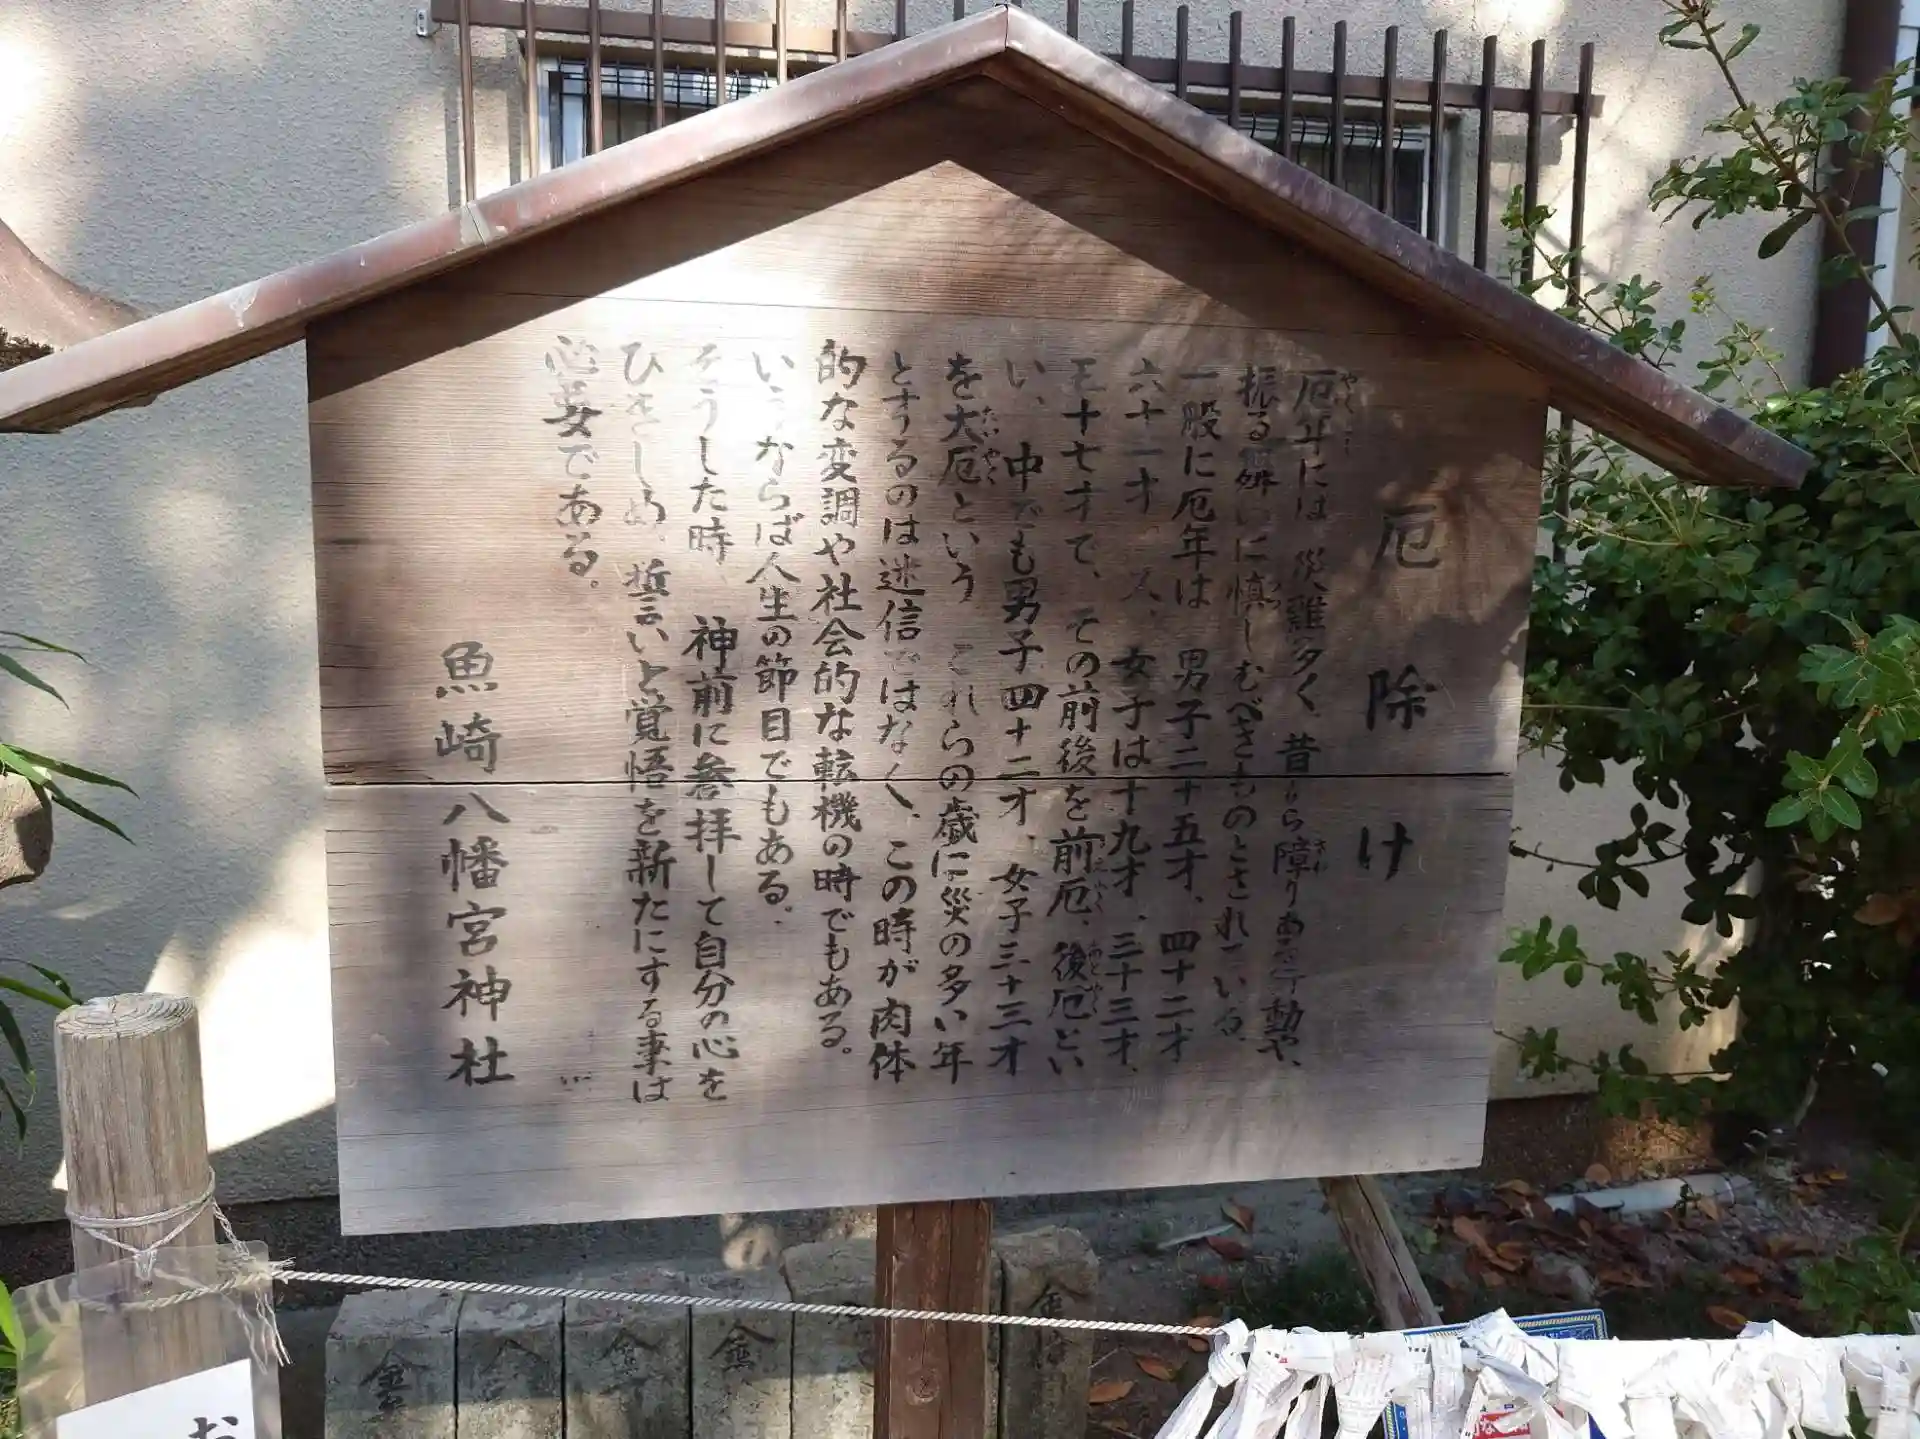 厄除け
厄年には災難多く、昔から障りある行動や、
振る舞いに慎しむべきものとされている。
一般に厄年は男子二十五才、四十二才
六十一才、又、女子は十九才、三十三才、
三十七才で、その前後を前厄、後厄とい
い、中でも男子四十二才、女子三十三才
を大厄という。これらの歳に災の多い年
とするのは迷信ではなく、この時が肉体
的な変調や社会的な転機の時でもある。
いうならば人生の節目でもある。
そうした時、神前に参拝して自分の心を
ひきしめ、誓いと覚悟を新たにする事は
必要である。
魚崎八幡宮神社